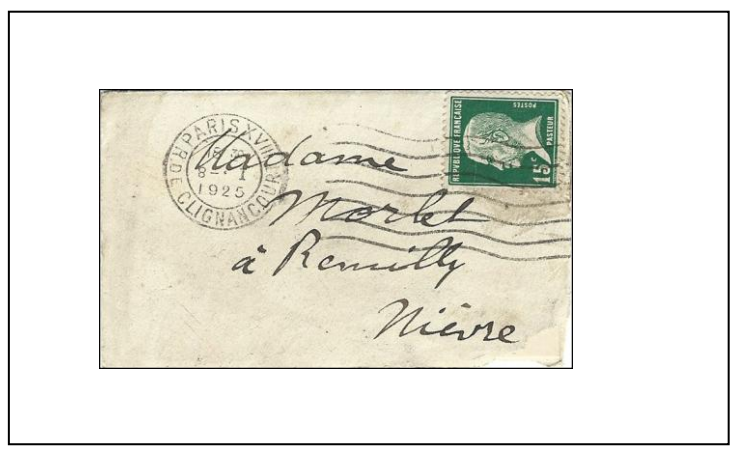 PARIS XVIII
18 30
8 - I
1925
R. DE CLIGNANCOURT
REPUBLIQUE FRANÇAISE
POSTES
PASTEUR
15c
Madame
Morlet
à Remilly
Nièvre